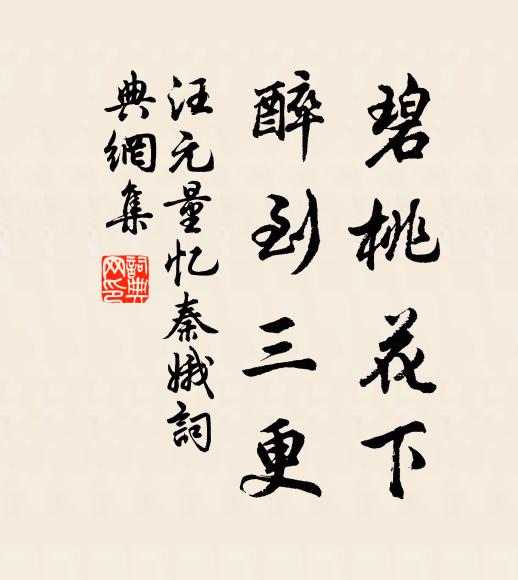 碧桃花下
醉到三更
汪元量忆秦娥詞
典網集
詞典網印